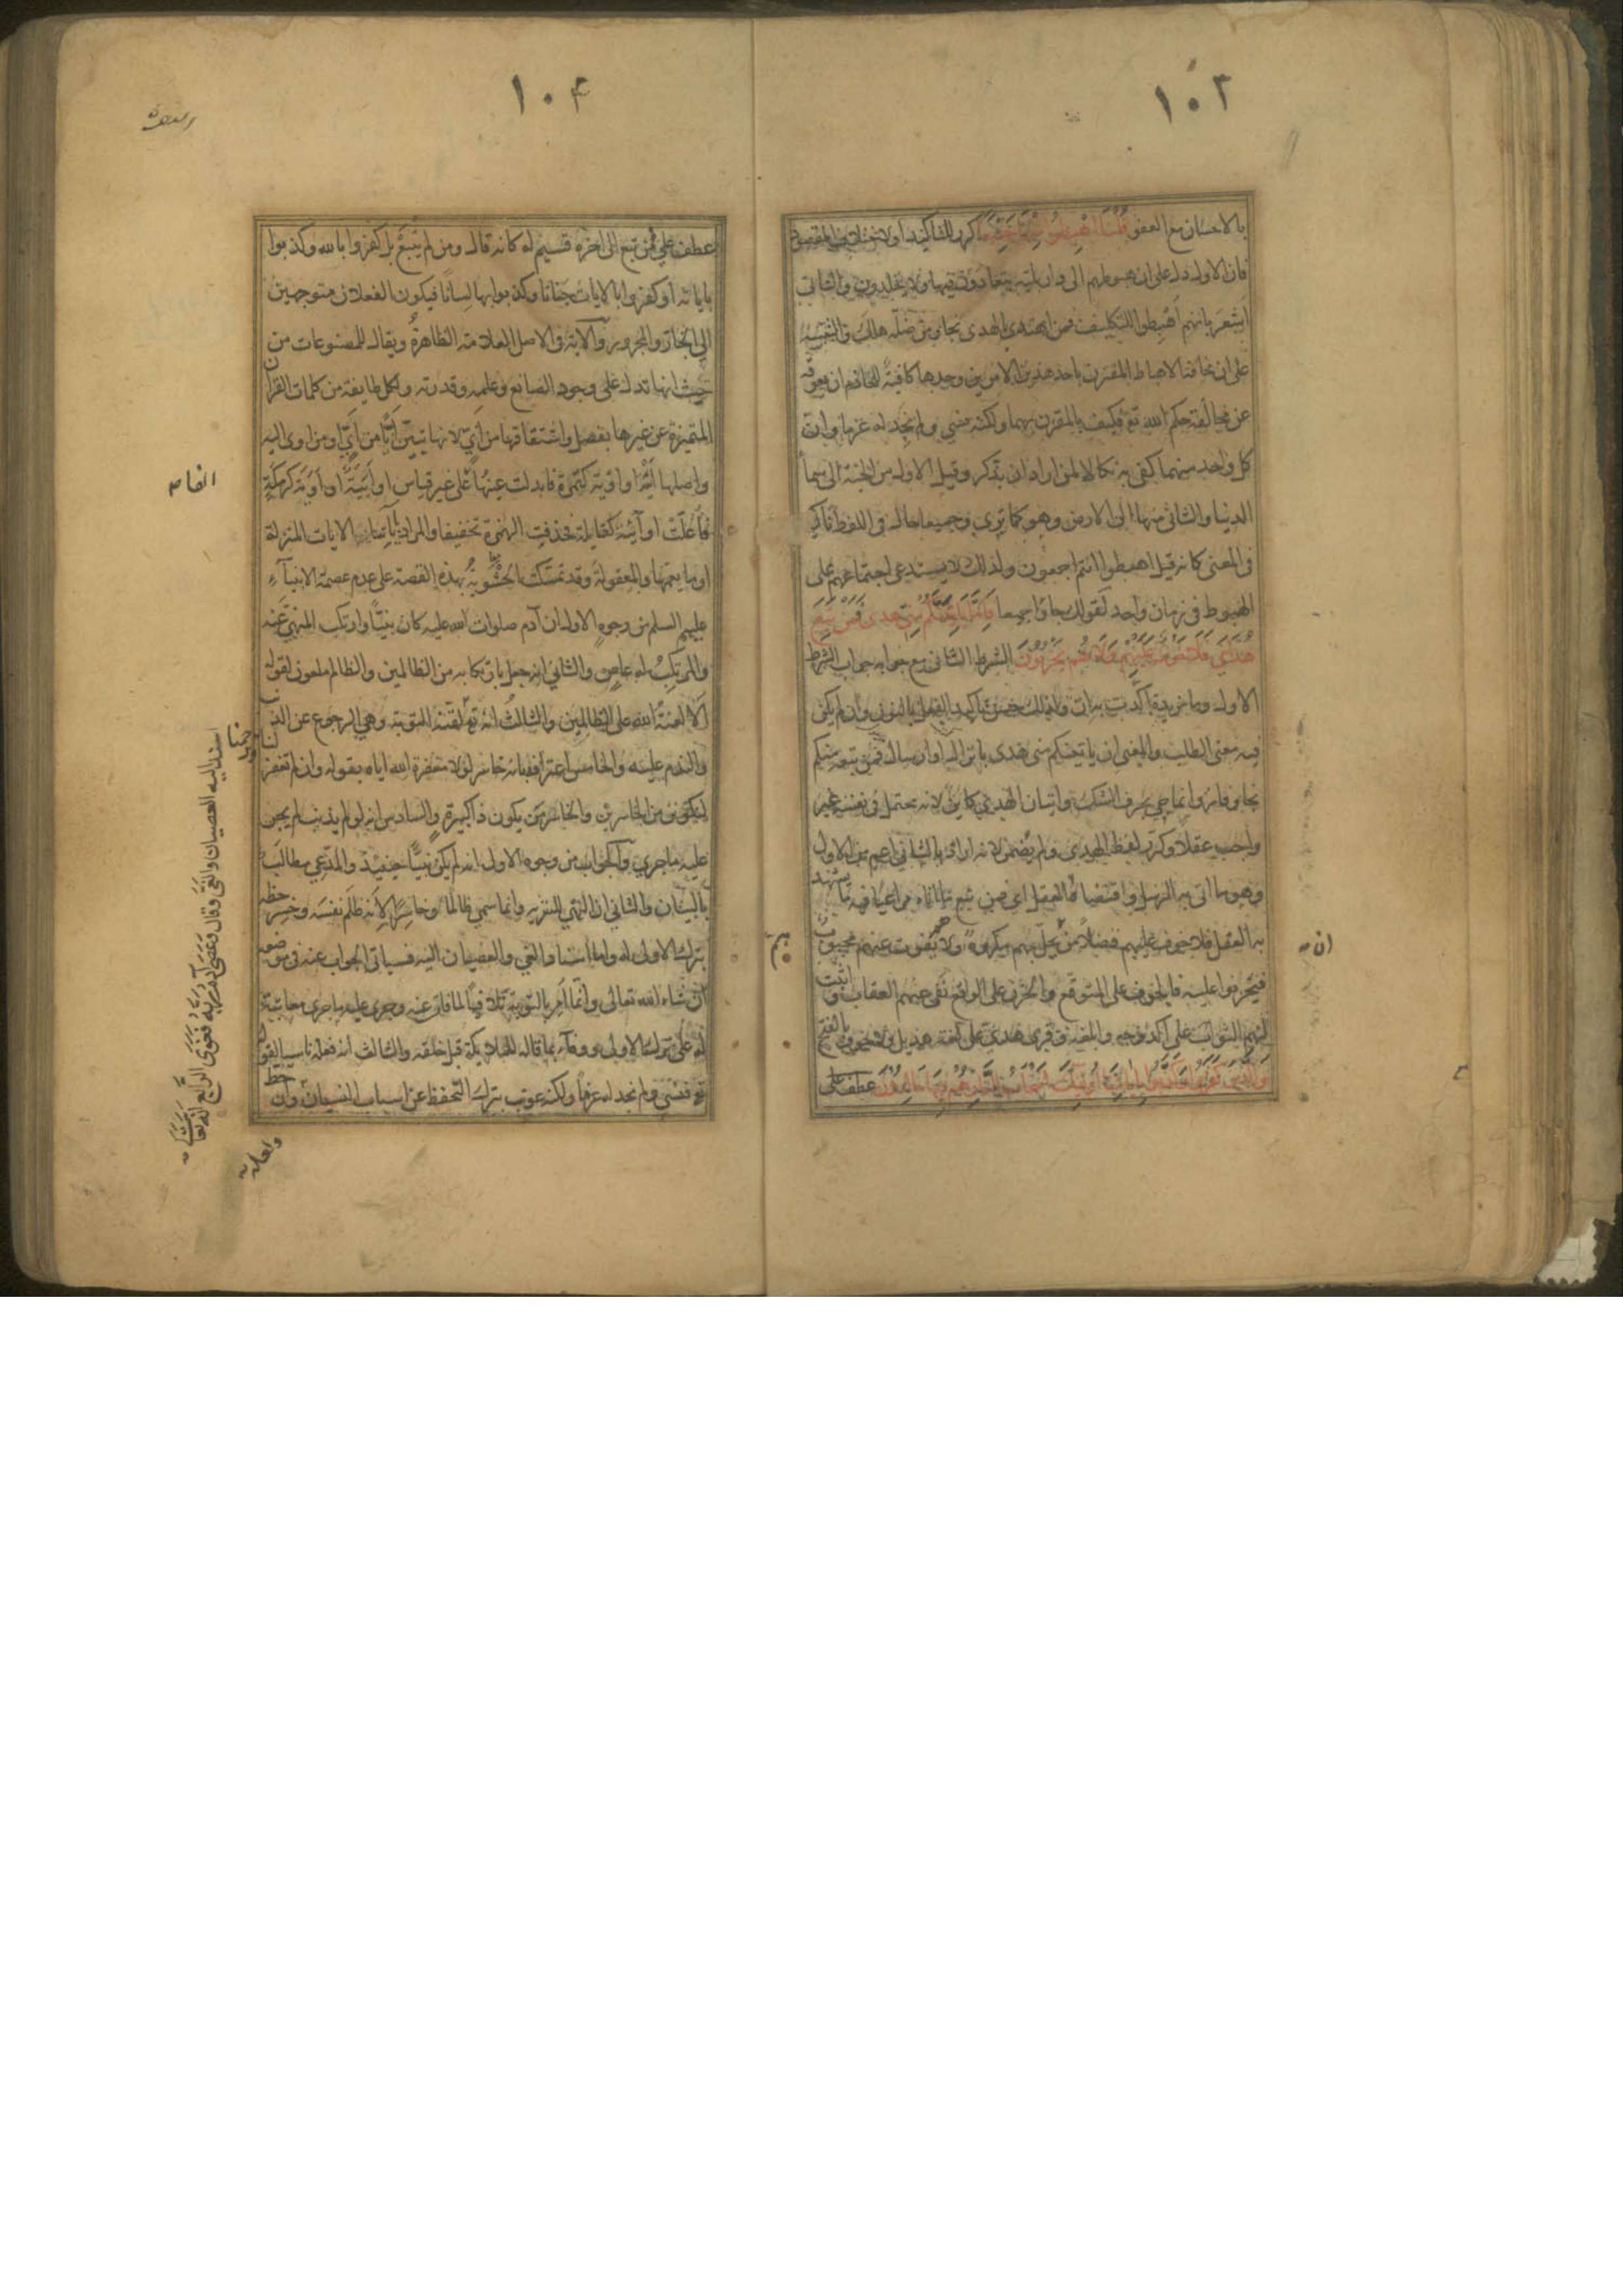 ١٠٣
بالاحسان مع العفو قلنا اهبطوا منها جميعا كرر للتاكيد او لاختلاف المقصود
فان الاول دل على ان هبوطهم الى دار بلية يتعادون فيها ولا يخلدون والثاني
اشعر بانهم اهبطوا للتكليف فمن اهتدى الهدى نجا ومن ضله هلك والتنبيه
على ان مخافة الاهباط المقترن باحد هذين الامرين وحدها كافية للحازم ان تعوقه
عن مخالفة حكم الله تع فكيف بالمقترن بهما ولكنه نسي ولم نجد له عزما وان
كل واحد منهما كفى به نكالا لمن اراد ان يذكر وقيل الاول من الجنة الى سماء
الدنيا والثاني منها الى الارض وهو كما ترى وجميعا حال في اللفظ تاكيد
في المعنى كانه قيل اهبطوا انتم اجمعون ولذلك لا يستدعي اجتماعهم على
الهبوط في زمان واحد كقولك جاؤا جميعا فاما ياتينكم مني هدى فمن تبع
هداي فلا خوف عليهم ولا هم يحزنون الشرط الثاني مع جوابه جواب الشرط
الاول وما مزيدة اكدت به ان ولذلك حسن تاكيد الفعل بالنون وان لم يكن
فيه معنى الطلب والمعنى ان ياتينكم مني هدى بانزال او ارسال فمن تبعه منكم
نجا وفاز وانما جي بحرف الشك واتيان الهدى كاين لانه محتمل في نفسه غير
واجب عقلا وكرر لفظ الهدى ولم يضمر لانه اراد بالثاني اعم من الاول
وهو ما اتى به الرسل واقتضاه العقل اي فمن تبع ما اتاه مراعيا فيه ما يشهد
به العقل فلا خوف عليهم فضلا من ان يحل بهم مكروه ولا هم يفوت عنهم محبوب
فيحزنوا عليه فالخوف على المتوقع والحزن على الواقع نفى عنهم العقاب واثبت
لهم الثواب على اكد وجه وابلغه وقرى هدي على لغة هذيل ولا خوف بالفتح
والذين كفروا وكذبوا باياتنا اولئك اصحاب النار هم فيها خالدون عطف على
ان
١٠٤
عطف على فمن تبع الى اخره قسيم له كانه قال ومن لم يتبع بل كفروا بالله وكذبوا
باياته او كفروا بالايات جنانا وكذبوا بها لسانا فيكون الفعلان متوجهين
الى الجار والمجرور والاية في الاصل العلامة الظاهرة ويقال للمصنوعات من
حيث انها تدل على وجود الصانع وعلمه وقدرته ولكل طايفة من كلمات القران
المتميزة عن غيرها بفصل واشتقاقها من اي لانها تبين ايا من اي او من اوى اليه
واصلها اية او اوية كتمرة فابدلت عينها على غير قياس او ايية او اوية كرمكة
فاعلت او آئية كقايلة فحذفت الهمزة تخفيفا والمراد باياتنا الايات المنزلة
او ما يعمها والمعقولة وقد تمسكت الحشوية بهذه القصة على عدم عصمة الانبياء
عليهم السلم من وجوه الاول ان آدم صلوات الله عليه كان نبيا وارتكب المنهي عنه
والمرتكب له عاص والثاني انه جعل بارتكابه من الظالمين والظالم ملعون لقوله
الا لعنة الله على الظالمين والثالث انه تع لقنه التوبة وهي الرجوع عن الذنب
والندم عليه والخامس اعترافه بانه خاسر لولا مغفرة الله اياه بقوله وان لم تغفر لنا وترحمنا
لنكونن من الخاسرين والخاسر من يكون ذا كبيرة والسادس انه لو لم يذنب لم يجر
عليه ما جرى والجواب من وجوه الاول انه لم يكن نبيا حينيذ والمدعي مطالب
بالبيان والثاني ان النهي للتنزيه وانما سمي ظالما وخاسرا لانه ظلم نفسه وخسر حظه
بترك الاولى له واما اسناد الغي والعصيان اليه فسياتي الجواب عنه في موضعه
ان شاء الله تعالى وانما امر بالتوبة تلافيا لما فات عنه وجرى عليه ما جرى معاتبة
له على ترك الاولى ووفاء بما قاله للملايكة قبل خلقه والثالث انه فعله ناسيا لقوله
تع فنسي ولم نجد له عزما ولكنه عوتب بترك التحفظ عن اسباب النسيان وان حط
اسند اليه العصيان والغي وقال وعصى آدم ربه فغوى الرابع انه تعالى
ولعله